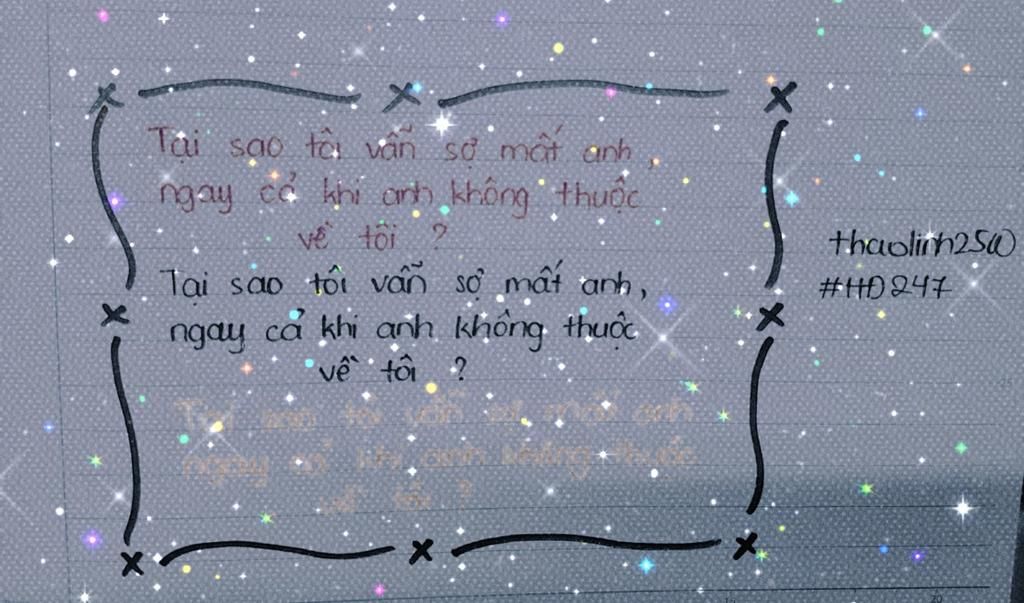 Tại sao tôi vẫn sợ mất anh,
ngay cả khi anh không thuộc
về tôi ?
Tại sao tôi vẫn sợ mất anh,
ngay cả khi anh không thuộc
về tôi ?
Tại sao tôi vẫn sợ mất anh
ngay cả khi anh không thuộc
về tôi ?
thaolinh25
#HD247